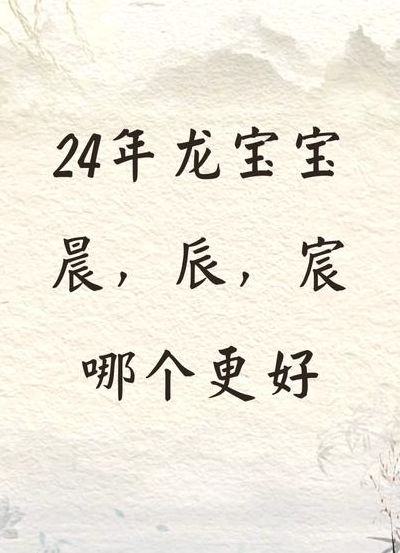 24年龙宝宝
晨，辰，宸
哪个更好